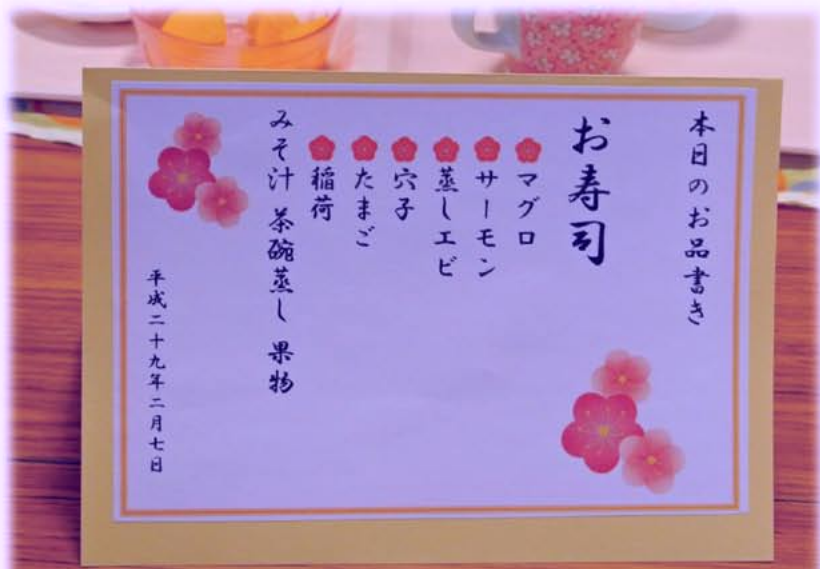 本日のお品書き
お寿司
マグロ
サーモン
蒸しエビ
穴子
たまご
稲荷
みそ汁 茶碗蒸し 果物
平成二十九年二月七日